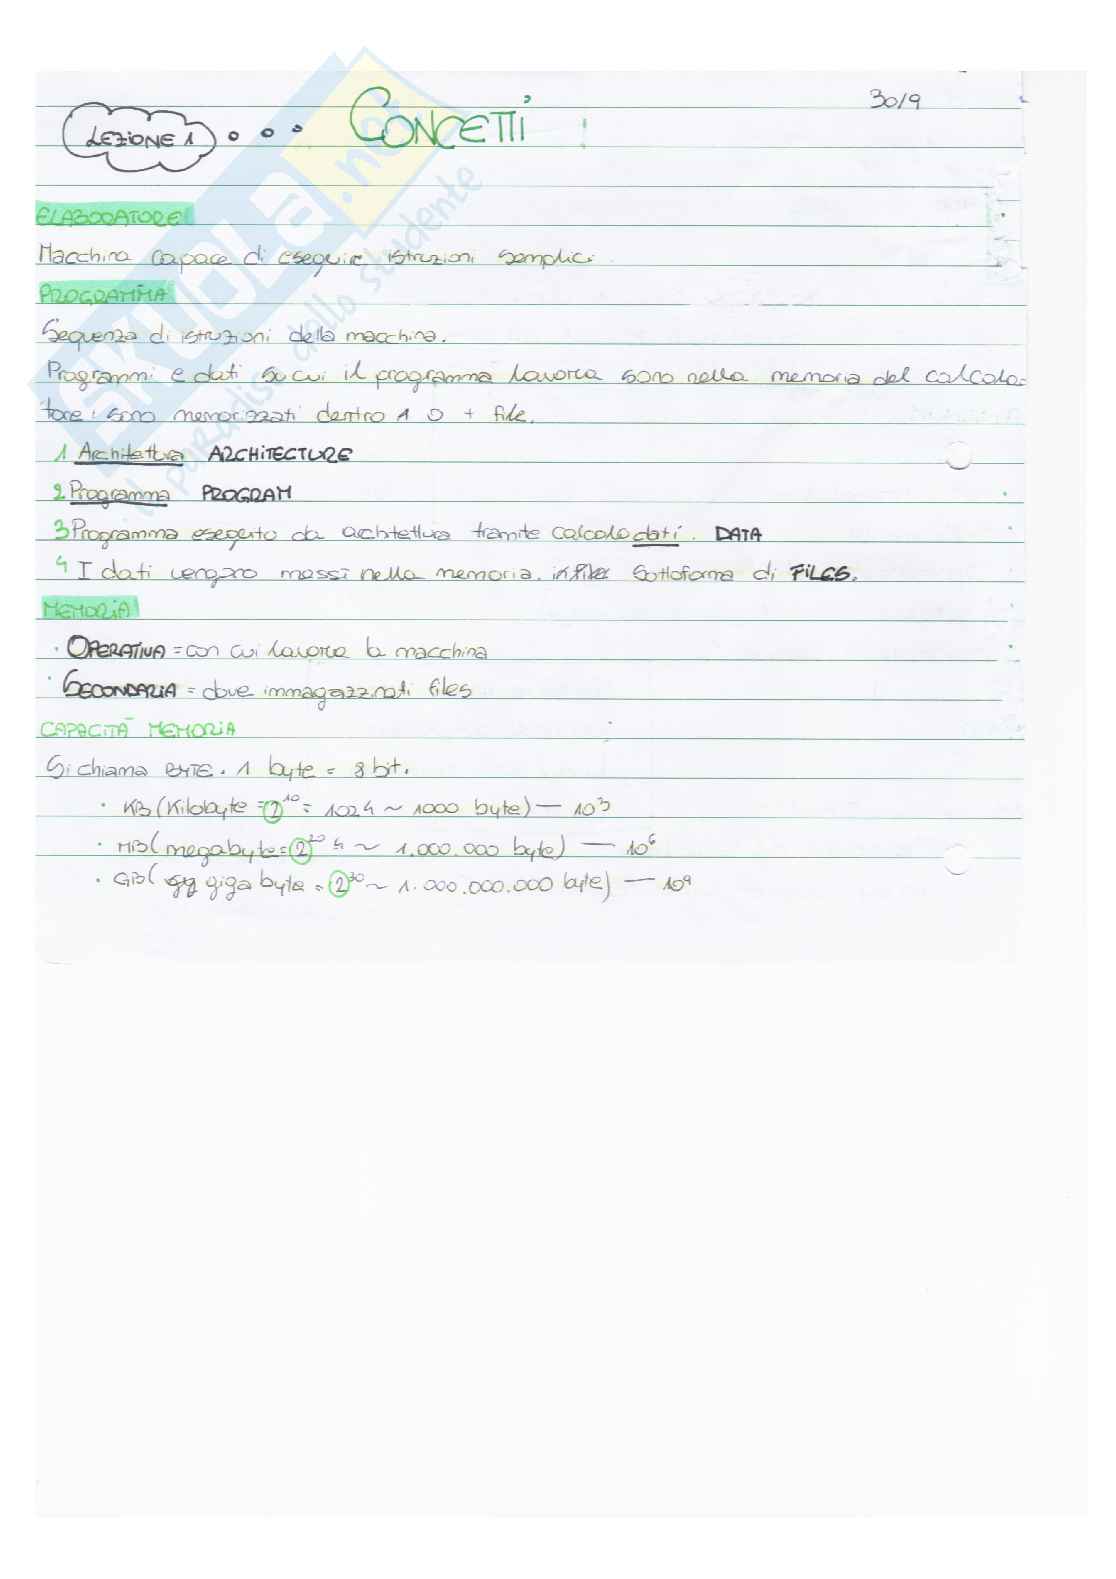 30/9
LEZIONE 1
CONCETTI
ELABORATORE
Macchina capace di eseguire istruzioni semplici.
PROGRAMMA
Sequenza di istruzioni della macchina.
Programmi e dati su cui il programma lavora sono nella memoria del calcola=
tore: sono memorizzati dentro 1 o + file.
1 Architettura ARCHITECTURE
2 Programma PROGRAM
3 Programma eseguito da architettura tramite calcolo dati. DATA
4 I dati vengono messi nella memoria. sottoforma di FILES.
MEMORIA
· OPERATIVA = con cui lavora la macchina
· SECONDARIA = dove immagazzinati files
CAPACITÀ MEMORIA
Si chiama BYTE. 1 byte = 8 bit.
· KB (Kilobyte = 2^10 = 1024 ~ 1000 byte) — 10^3
· MB (megabyte = 2^20 ~ 1.000.000 byte) — 10^6
· GB ( giga byte = 2^30 ~ 1.000.000.000 byte) — 10^9
SKUOLA.net
il paradiso dello studente